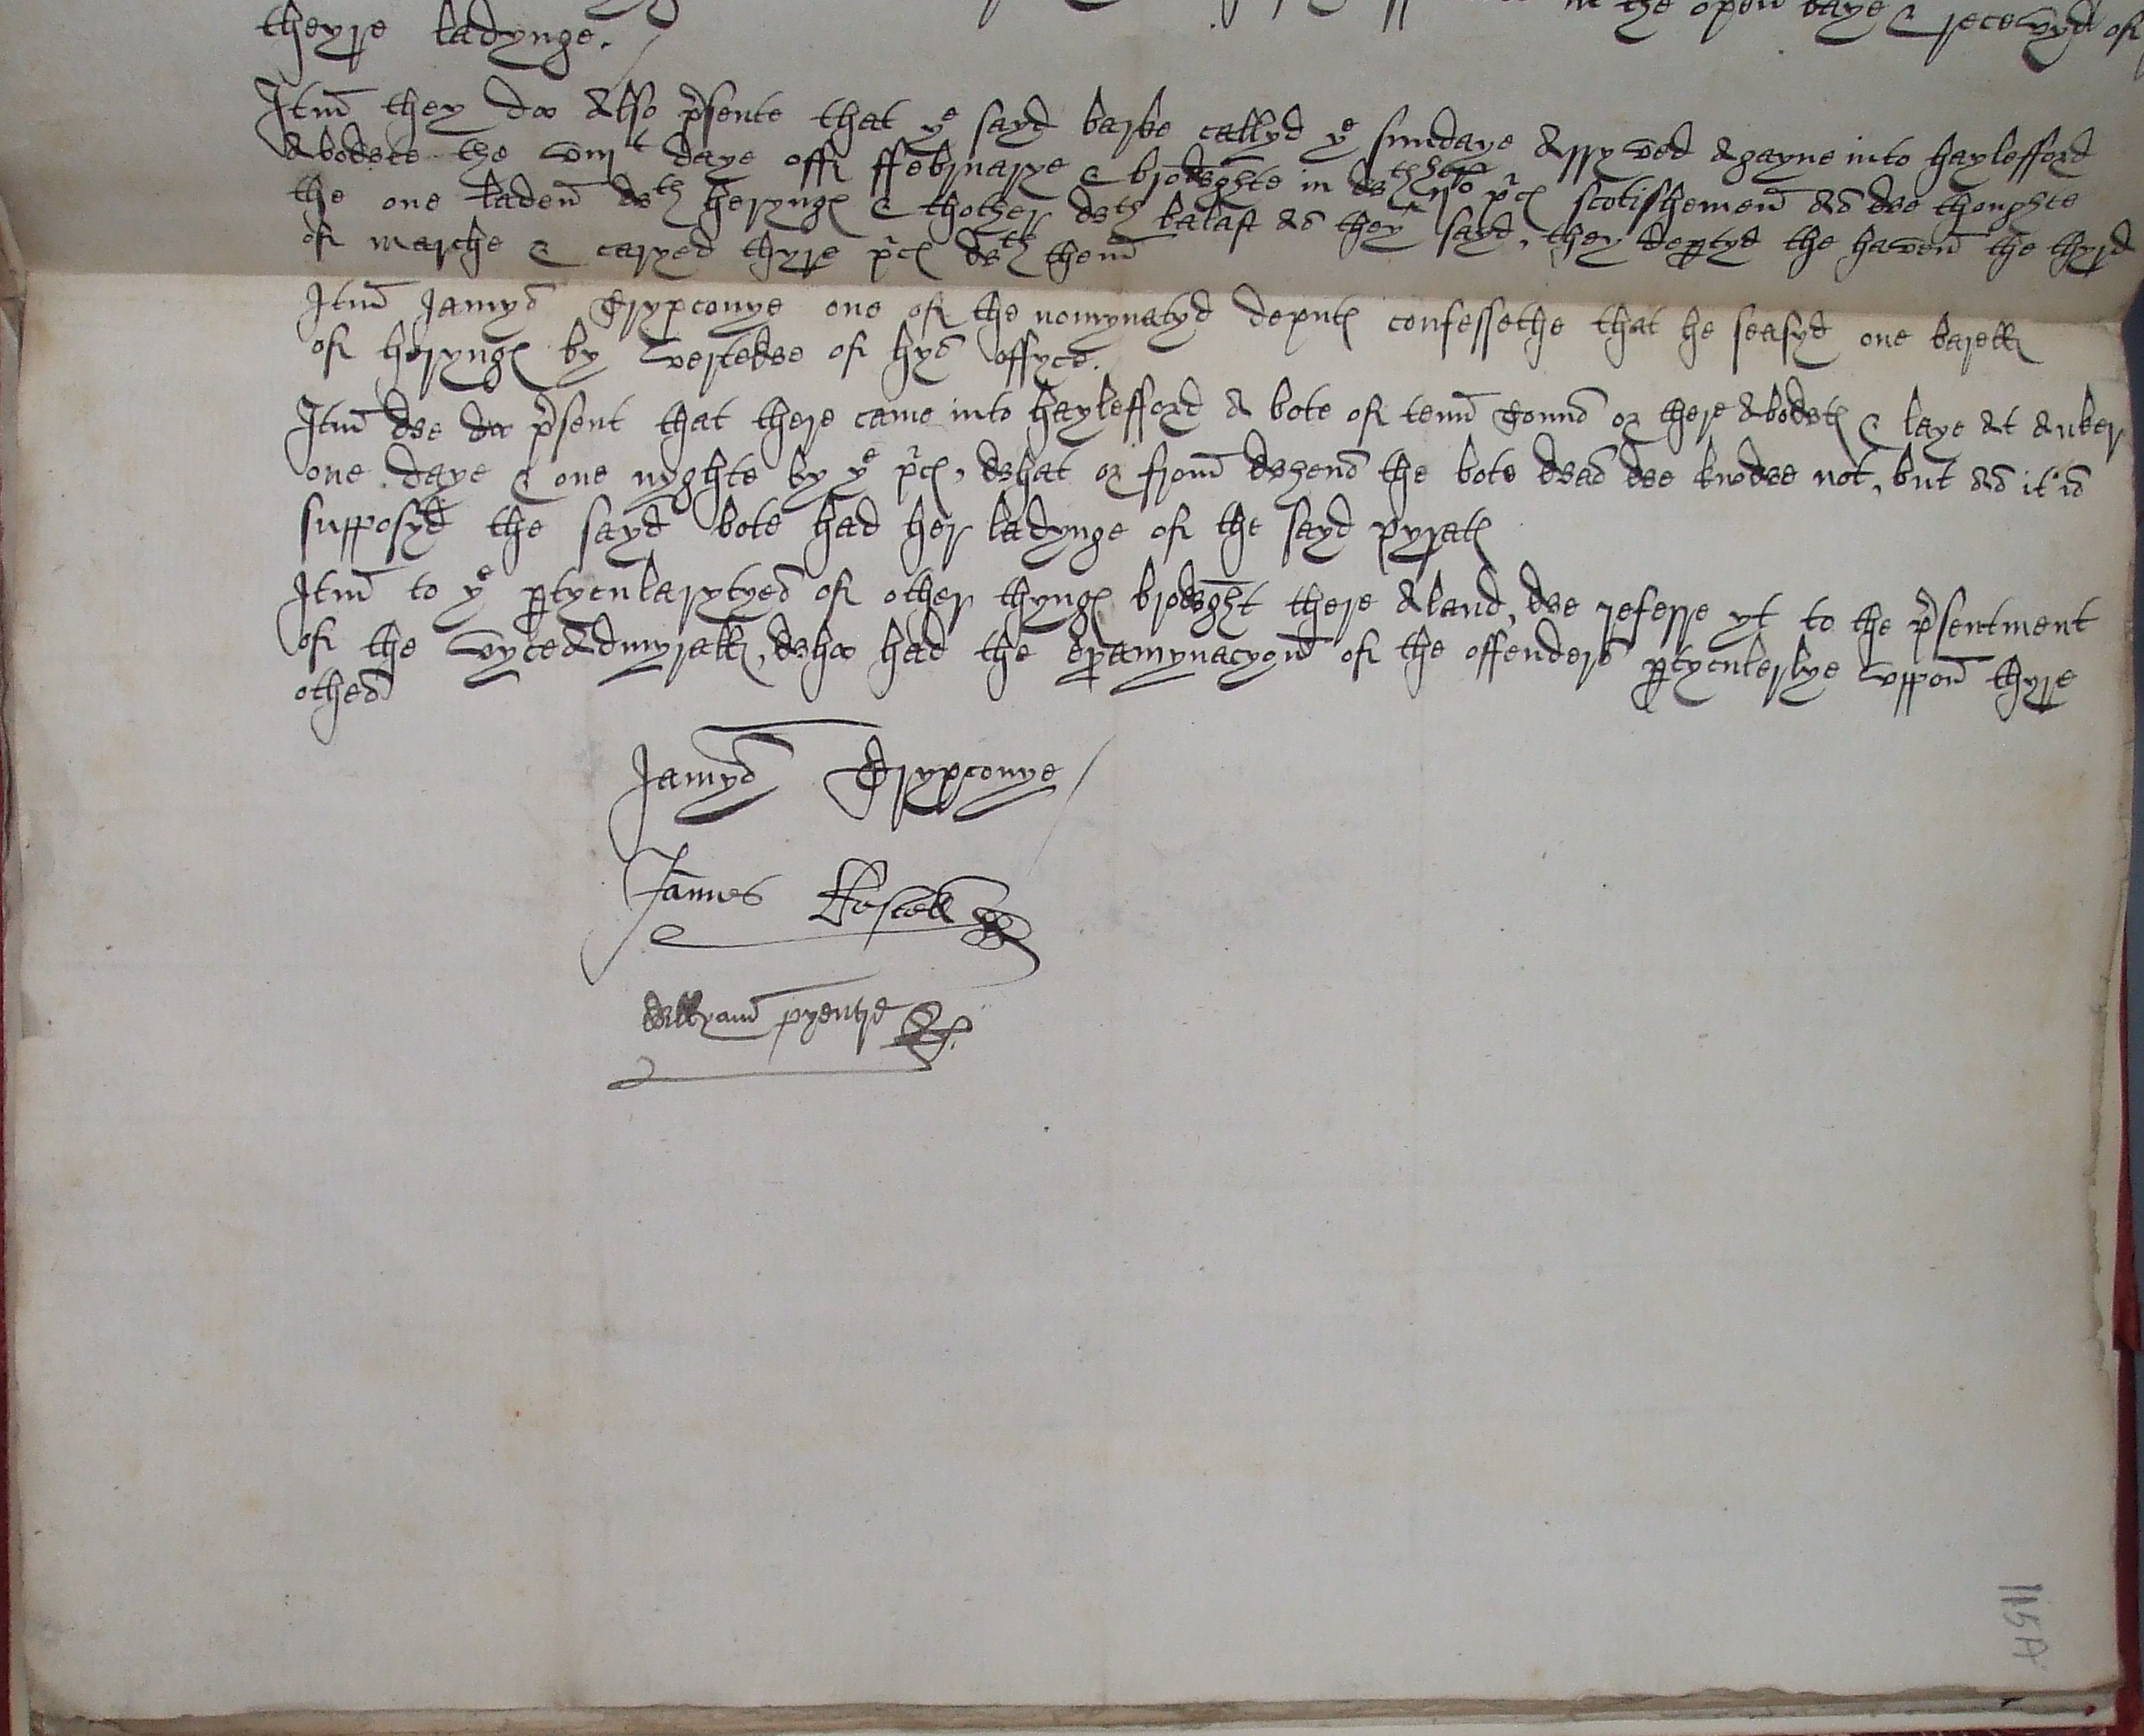 in the open baye & recevyd of
theyre ladynge.
Itm they do also p̱sente that ye sayd barke callyd ye sundaye arryved agayne into haylefford
abowte the viijt daye off ffebruarye & browghte in wth her ij p̱c scotishemen as we thoughte
the one laden wth heryng & thother wth balast as they sayd, they dep̱tyd the haven the thyrd
of marche & caryed thyre p̱c wth them
Itm Jamys Trypconye one of the nomynatyd deput confessethe that he seasyd one barell
of heryng by vertewe of hys offyce.
Itm we do p̱sent that there came into haylefford a bote of tenn tonns or there abowt & laye at anker
one daye & one nyghte by ye p̱c, what or from whens the bote was we knowe not, but as it is
supposyd the sayd bote had her ladynge of the sayd pyrat
Itm to ye p̱tycularytyes of other thyng browght there aland, we referre yt to the p̱sentment
of the vyceadmyrall, who had the examynacyon of the offenders p̱tyculerlye uppon thyre
othes
Jamys Trypconye
James Roscell
Wyllyam pyentre
115A